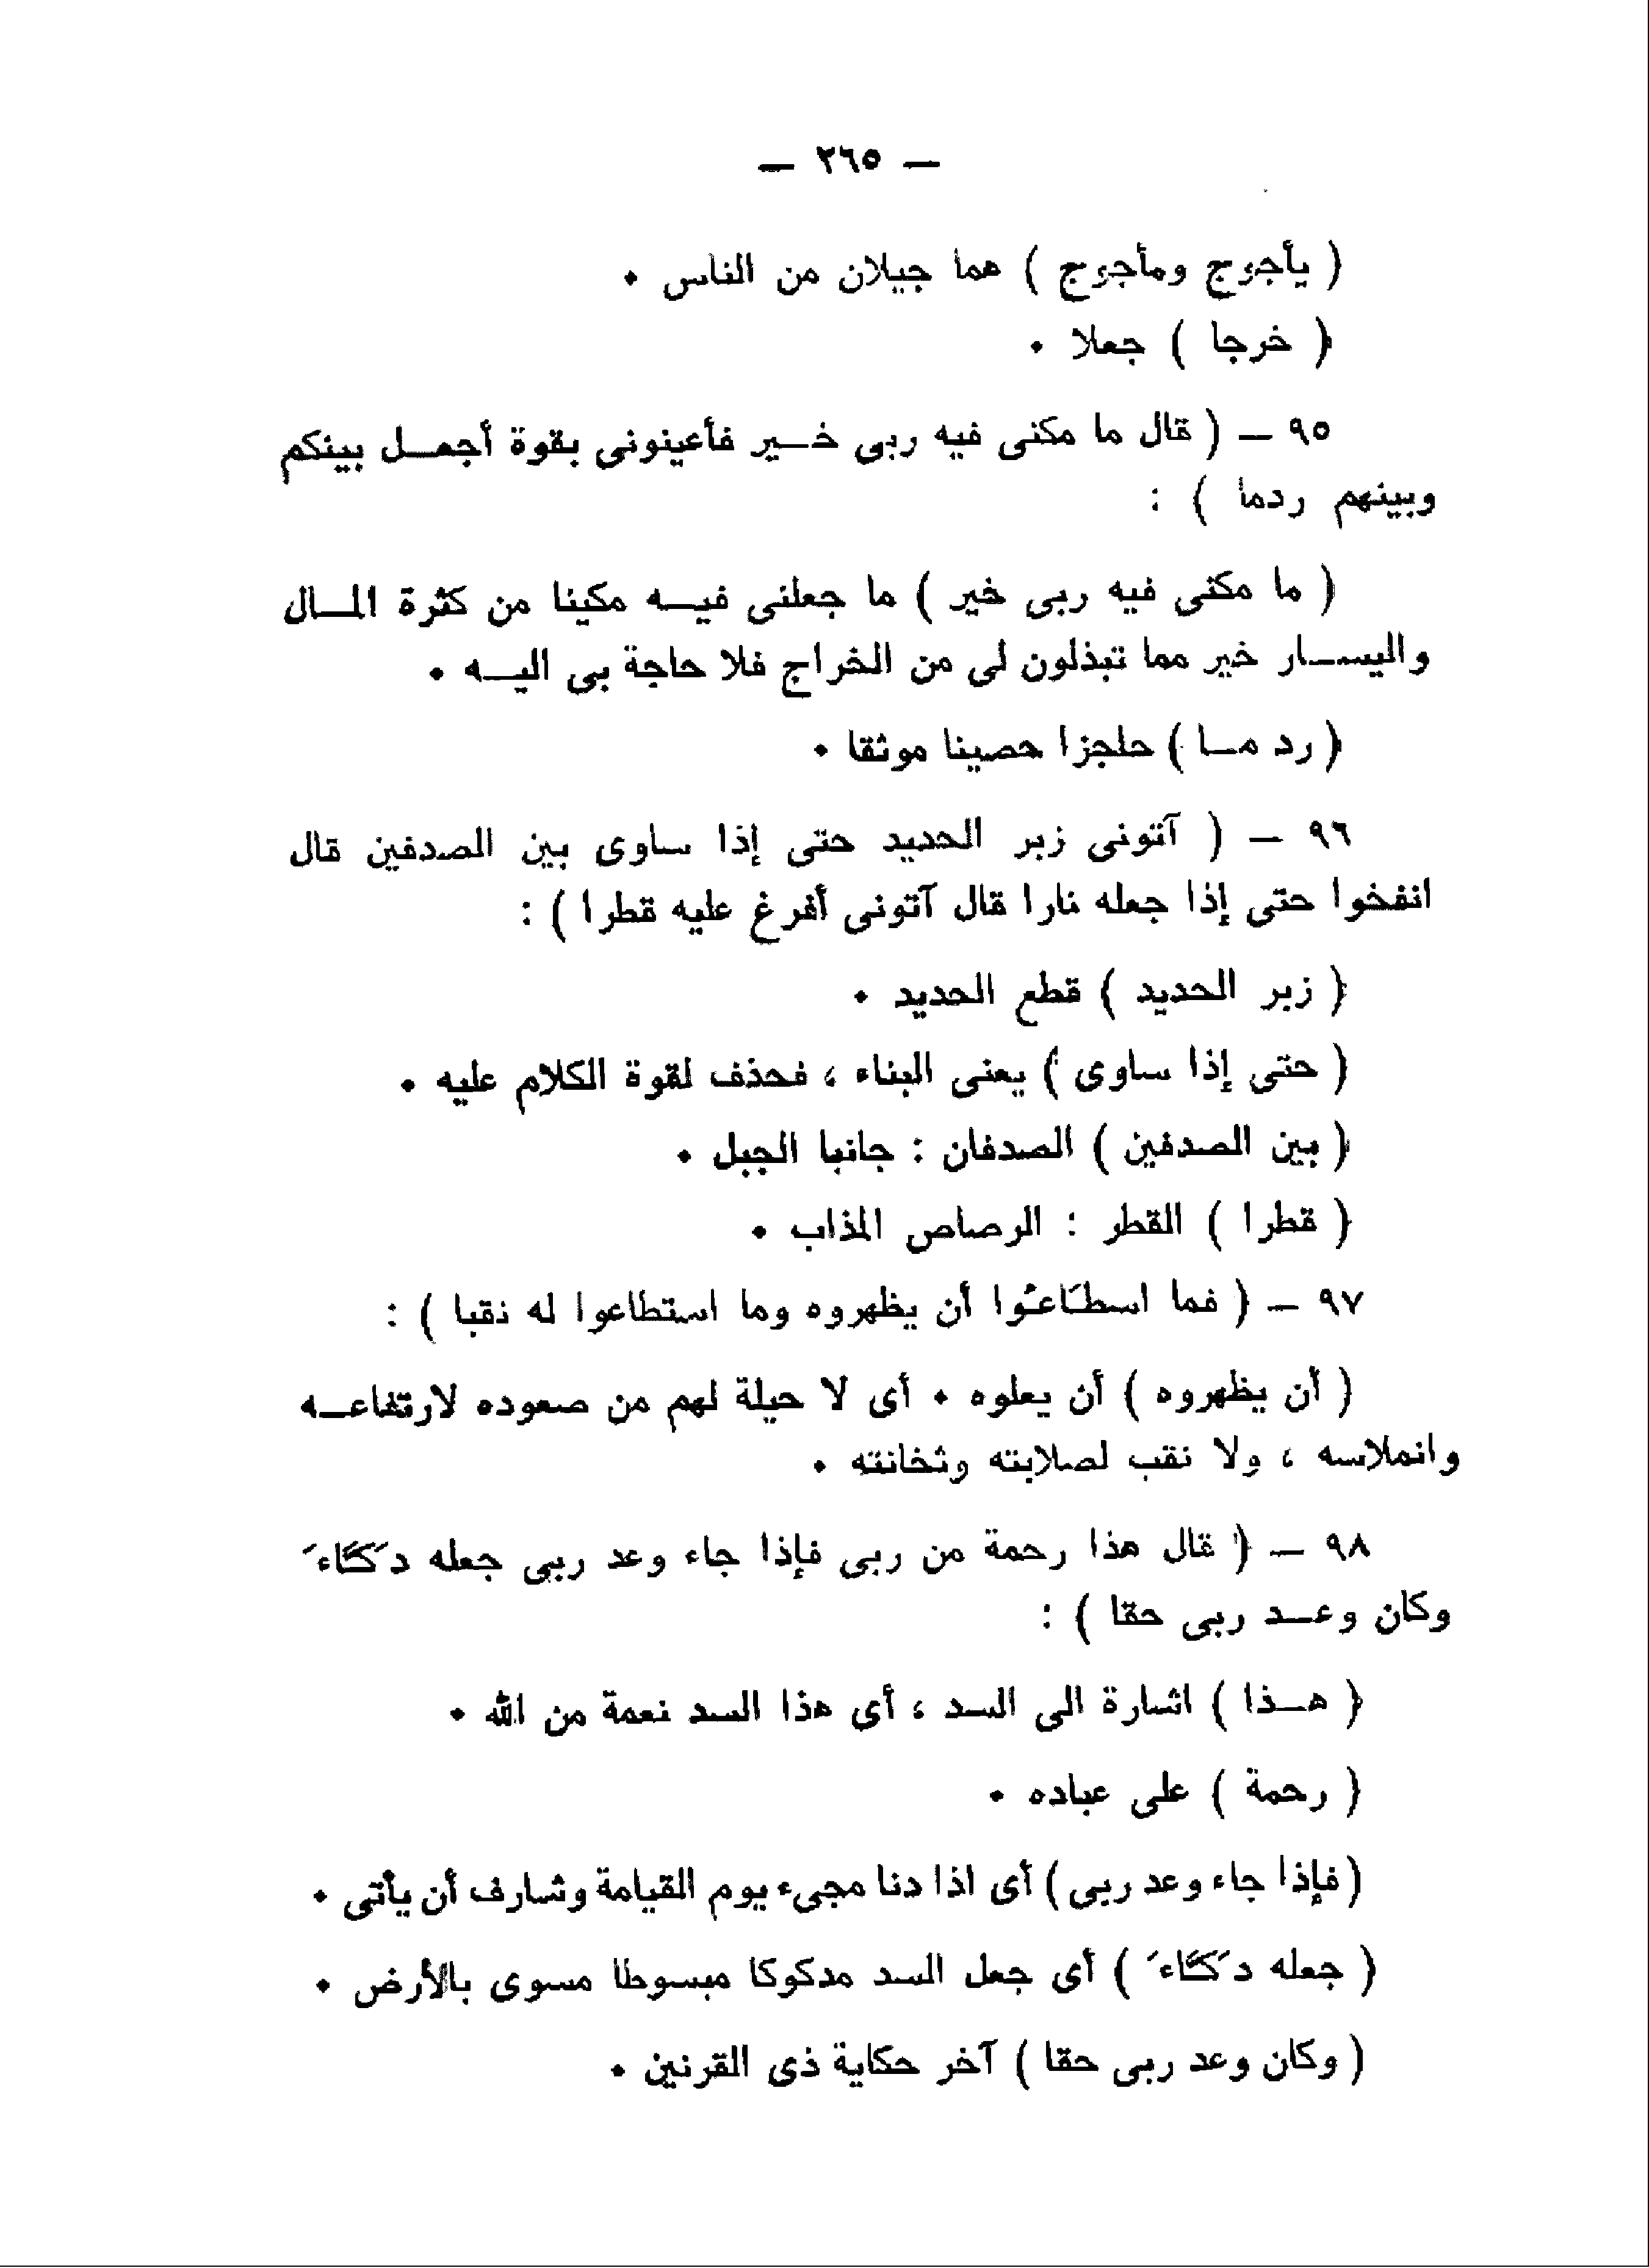 — ٢٦٥ —
( يأجوج ومأجوج ) هما جيلان من الناس ٠
( خرجا ) جعلا ٠
٩٥ — ( قال ما مكنى فيه ربى خـــير فأعينونى بقوة أجعــل بينكم
وبينهم ردما ) :
( ما مكنى فيه ربى خير ) ما جعلنى فيــه مكينا من كثرة المــال
واليســار خير مما تبذلون لى من الخراج فلا حاجة بى اليــه ٠
( رد مــا ) حلجزا حصينا موثقا ٠
٩٦ — ( آتونى زبر الحديد حتى إذا ساوى بين الصدفين قال
انفخوا حتى إذا جعله نارا قال آتونى أفرغ عليه قطرا ) :
( زبر الحديد ) قطع الحديد ٠
( حتى إذا ساوى ) يعنى البناء ، فحذف لقوة الكلام عليه ٠
( بين الصدفين ) الصدفان : جانبا الجبل ٠
( قطرا ) القطر : الرصاص المذاب ٠
٩٧ — ( فما اسطَاعُوا أن يظهروه وما استطاعوا له نقبا ) :
( أن يظهروه ) أن يعلوه ٠ أى لا حيلة لهم من صعوده لارتفاعــه
وانملاسه ، ولا نقب لصلابته وثخانته ٠
٩٨ — ( قال هذا رحمة من ربى فإذا جاء وعد ربى جعله دَكَّاءَ
وكان وعــد ربى حقا ) :
( هــذا ) اشارة الى السد ، أى هذا السد نعمة من الله ٠
( رحمة ) على عباده ٠
( فإذا جاء وعد ربى ) أى اذا دنا مجىء يوم القيامة وشارف أن يأتى ٠
( جعله دَكَّاءَ ) أى جعل السد مدكوكا مبسوطا مسوى بالأرض ٠
( وكان وعد ربى حقا ) آخر حكاية ذى القرنين ٠